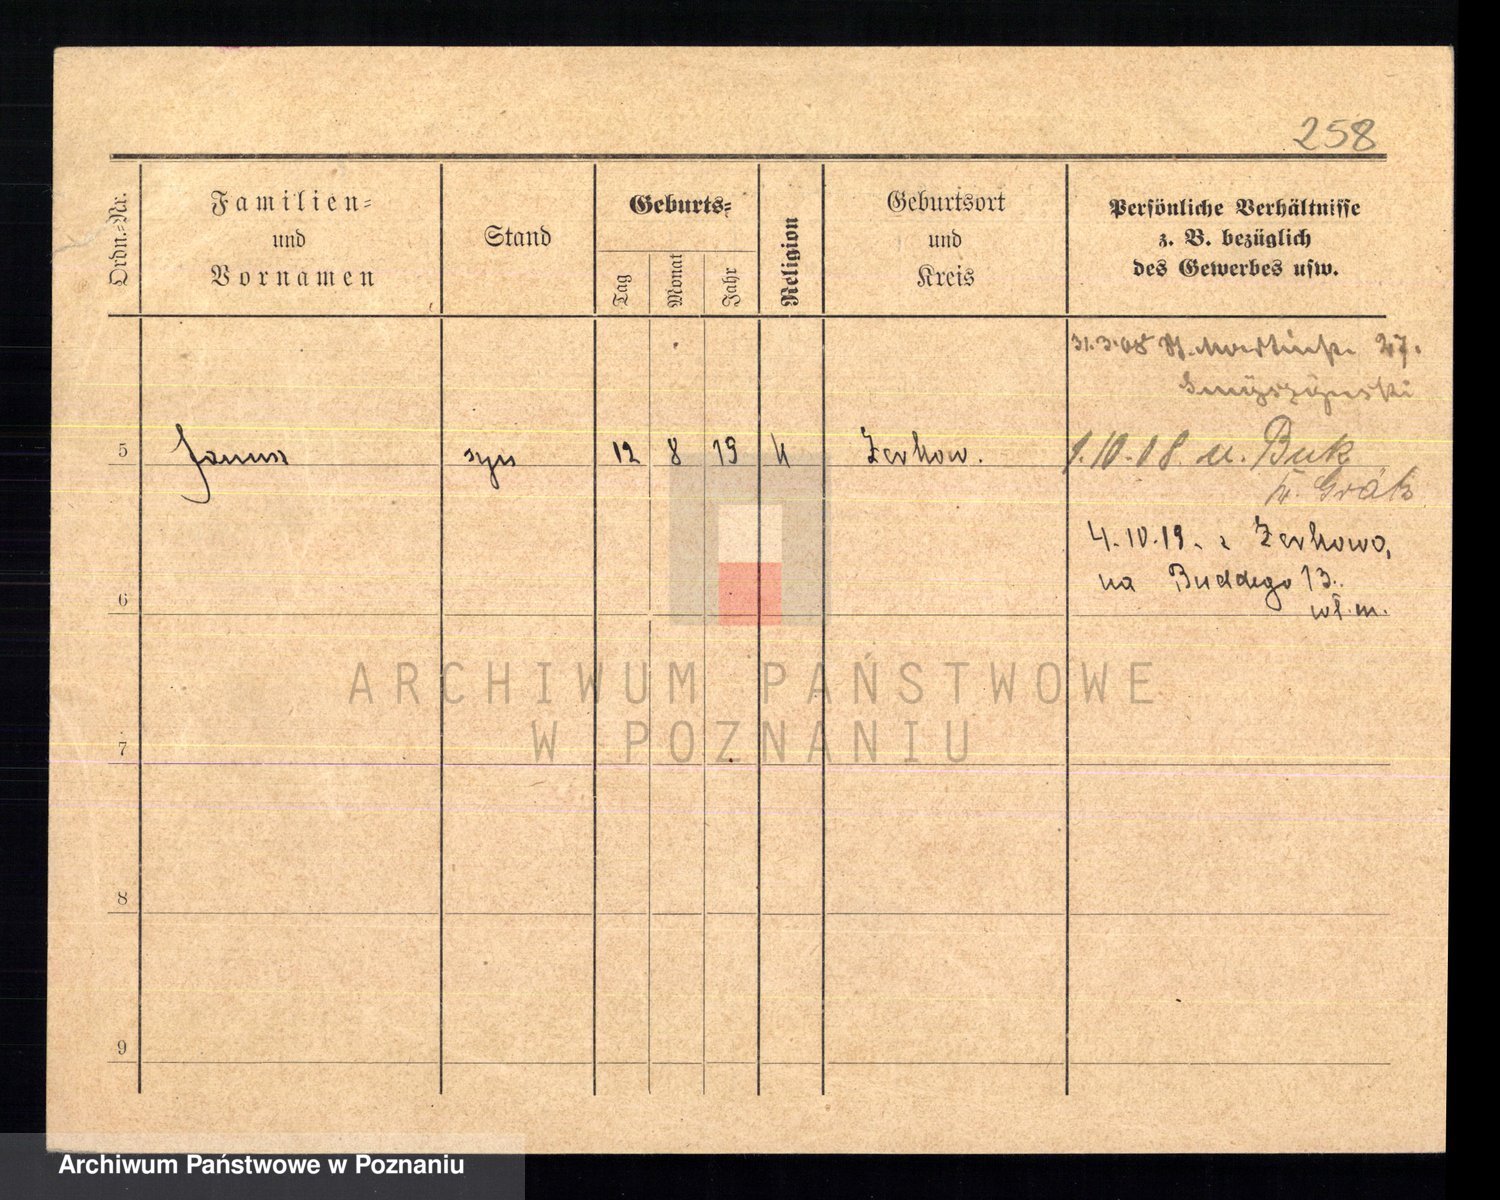 258
Ordn.-Nr.
Familien-
und
Vornamen
Stand
Geburts-
Tag
Monat
Jahr
Religion
Geburtsort
und
Kreis
Persönliche Verhältnisse
z. B. bezüglich
des Gewerbes usw.
31.3.08 St. Martinstr. 27.
5 syn 12 8 19 k Żerkow.
1.10.18. n. Buk
kr. Grätz
4.10.19. z Żerkowa,
na Buddego 13.
wł. m.
6
7
8
9
ARCHIWUM PAŃSTWOWE
W POZNANIU
Archiwum Państwowe w Poznaniu